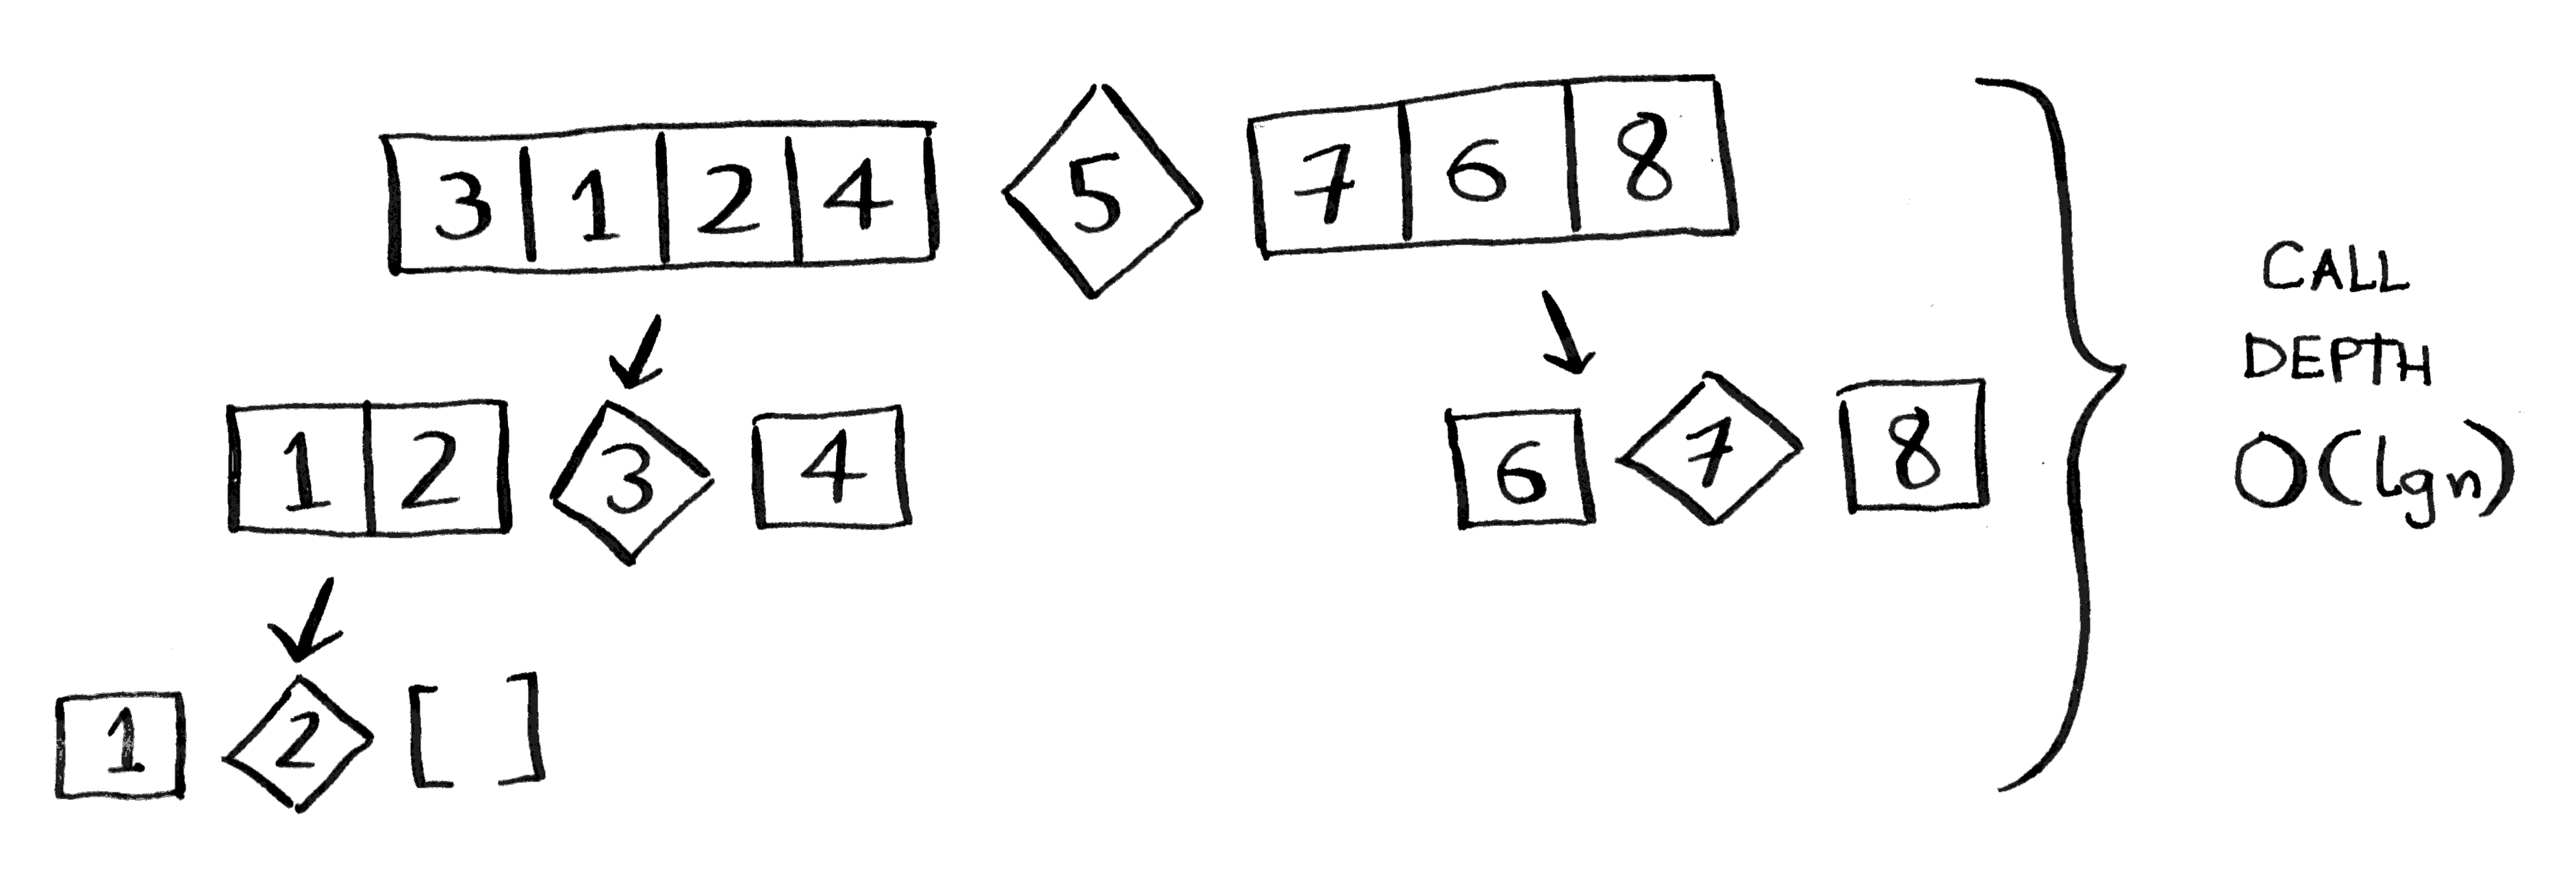 3 1 2 4 5 7 6 8
1 2 3 4 6 7 8
1 2 [ ]
CALL
DEPTH
O(lgn)